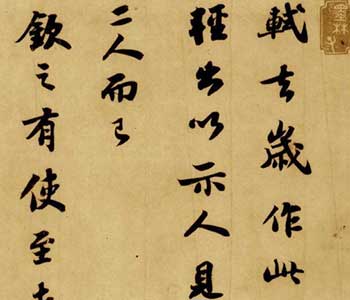 軾去歲作此
輕出以示人見
二人而已
欽之有使至
墨林